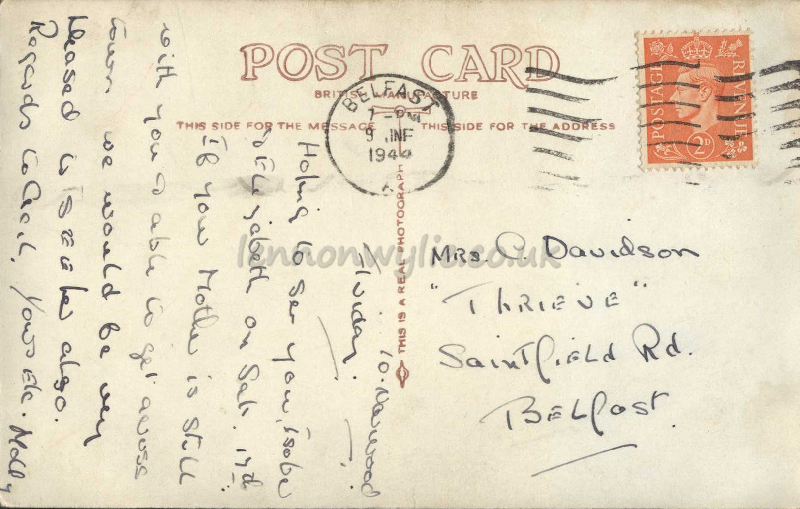 POST CARD
BRITISH MANUFACTURE
THIS SIDE FOR THE MESSAGE
THIS SIDE FOR THE ADDRESS
BELFAST
7 - PM
9 JNE
1944
POSTAGE
REVENUE
2D
THIS IS A REAL PHOTOGRAPH
lennonwylie.co.uk
Mrs. C. Davidson
"THRIEVE"
Saintfield Rd.
Belfast
10. Norwood
Friday.
Hoping to see you, Isobel
& Elizabeth on Sat. 17th
If your Mother is still
with you & able to get across
town we would be very
pleased to see her also.
Regards to Cecil. Yours etc. Molly